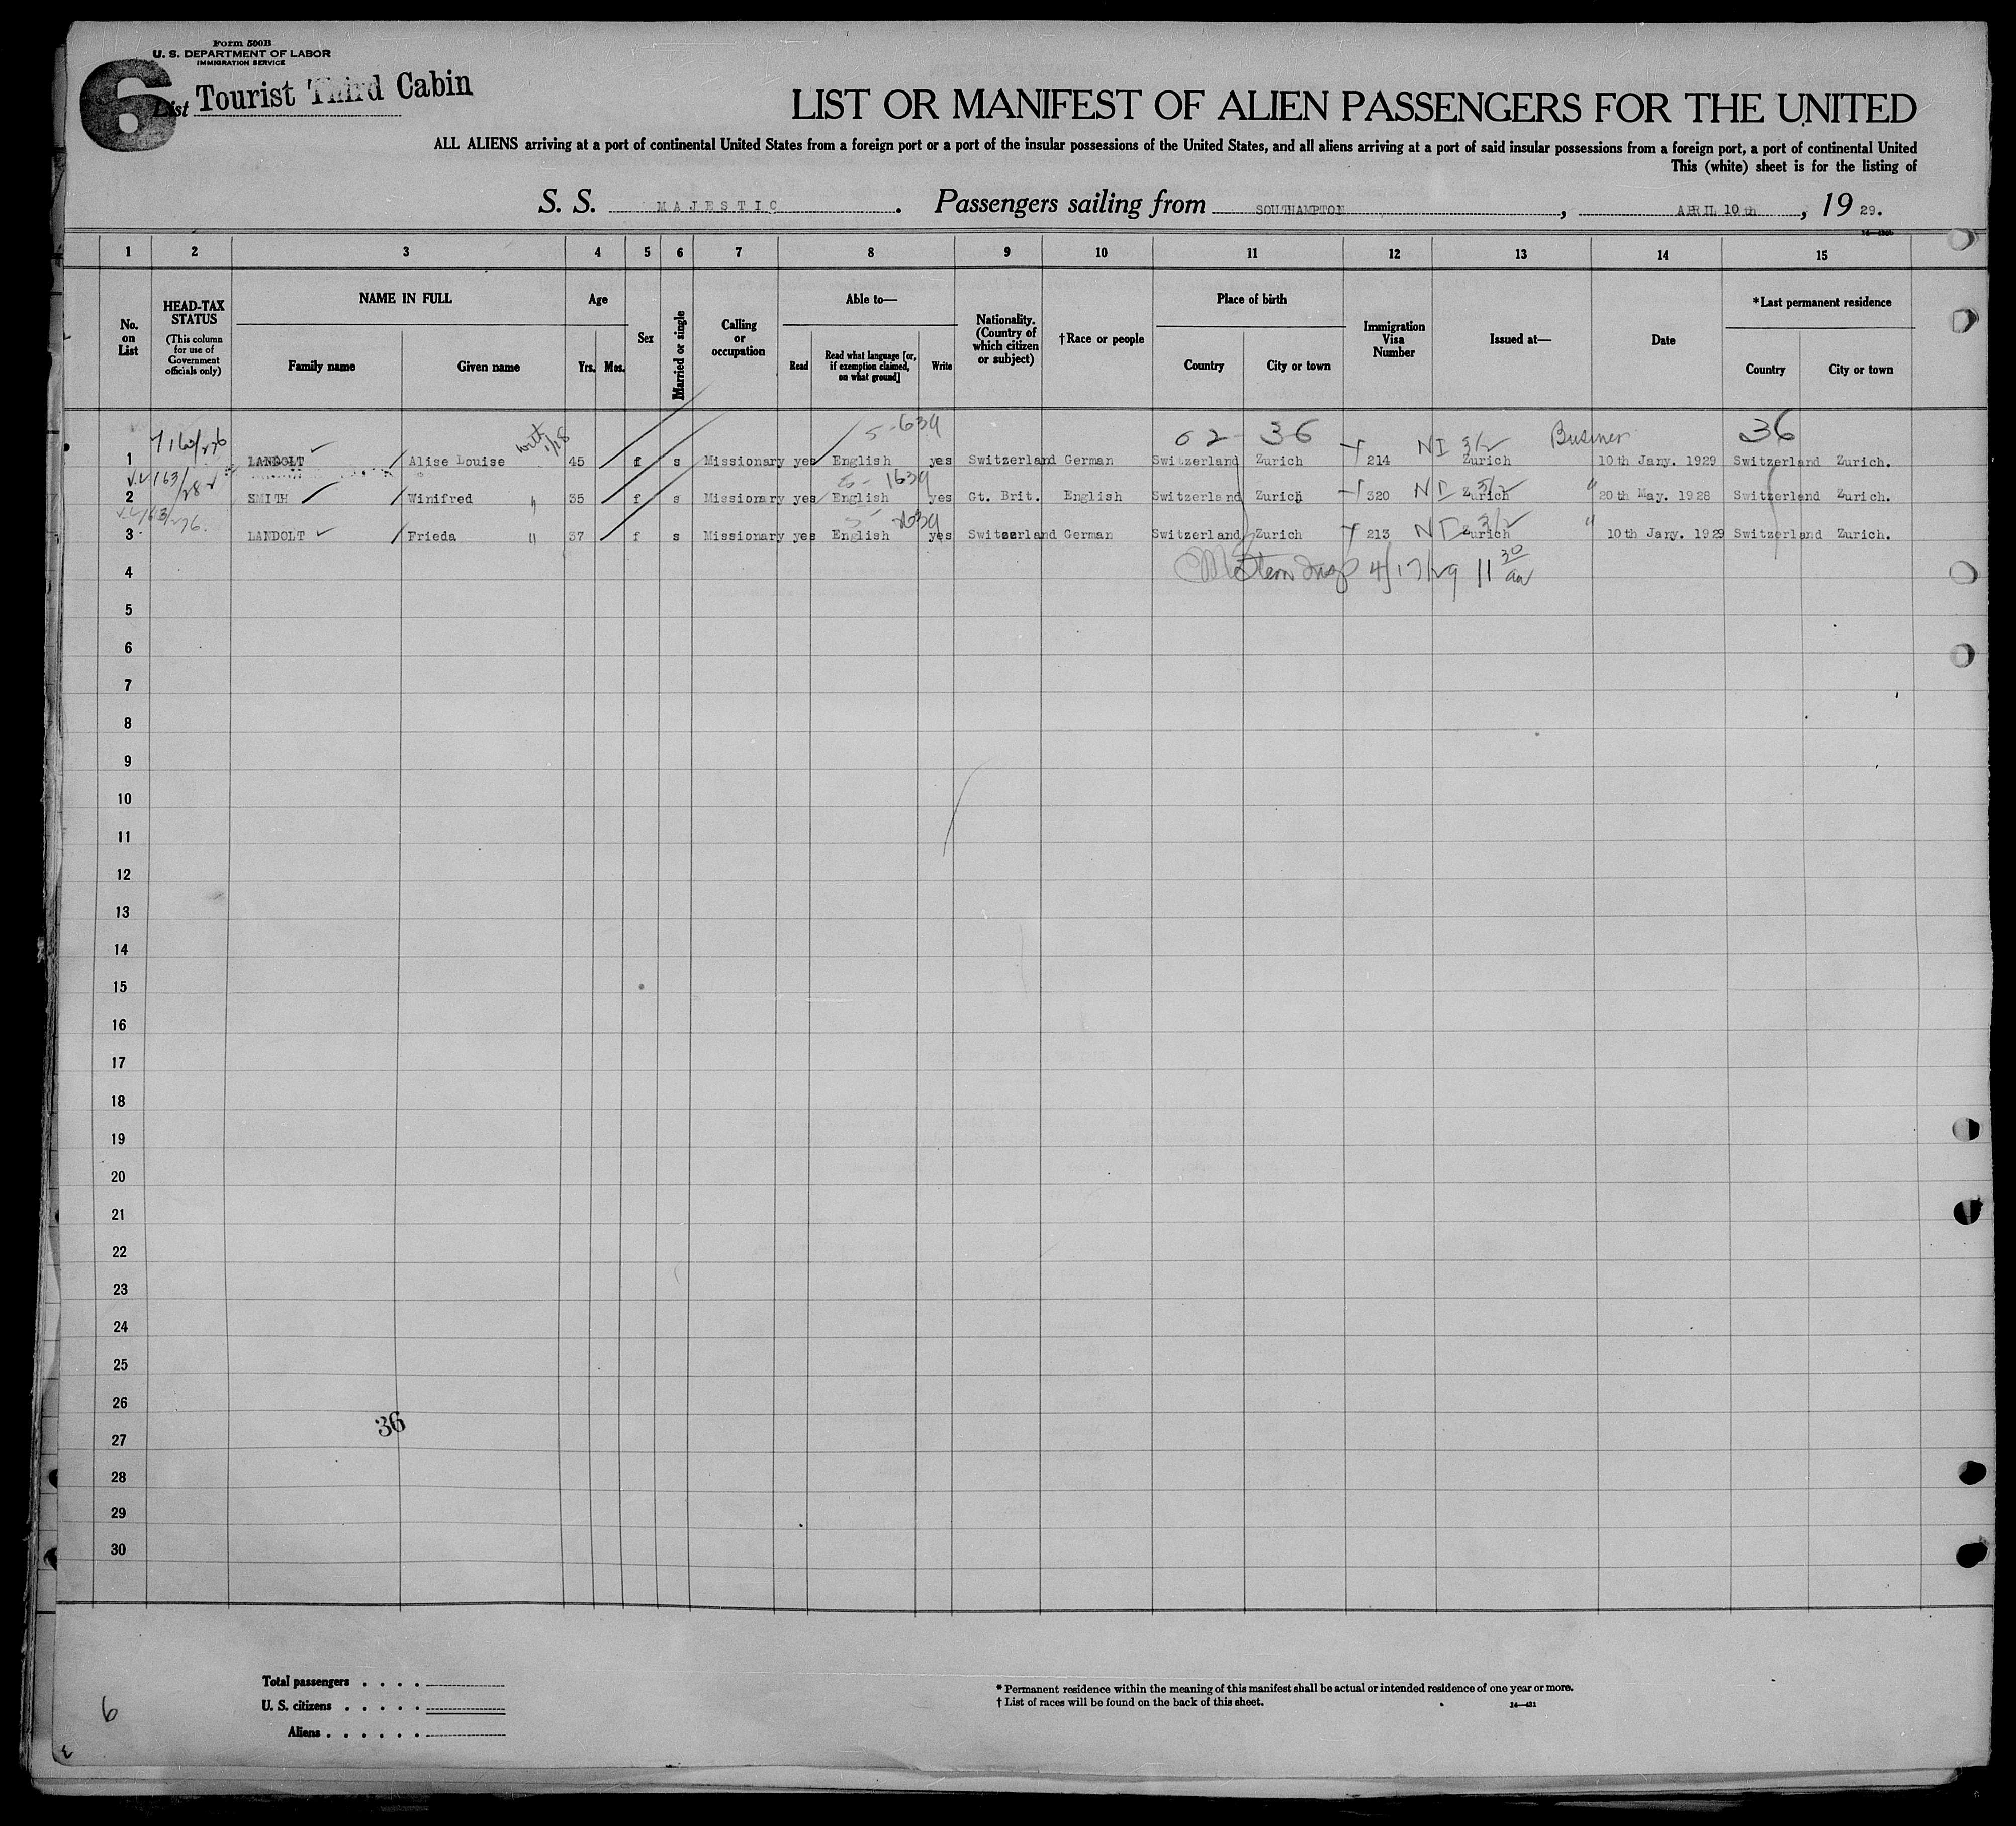 Form 500B
U. S. DEPARTMENT OF LABOR
IMMIGRATION SERVICE
6
List Tourist Third Cabin
LIST OR MANIFEST OF ALIEN PASSENGERS FOR THE UNITED
ALL ALIENS arriving at a port of continental United States from a foreign port or a port of the insular possessions of the United States, and all aliens arriving at a port of said insular possessions from a foreign port, a port of continental United
This (white) sheet is for the listing of
S. S. MAJESTIC. Passengers sailing from SOUTHAMPTON, APRIL 10th, 19 29.
1 2 3 4 5 6 7 8 9 10 11 12 13 14 15
No. on List
HEAD-TAX STATUS
(This column for use of Government officials only)
NAME IN FULL
Family name
Given name
Age
Yrs. Mos.
Sex
Married or single
Calling or occupation
Able to—
Read
Read what language [or, if exemption claimed, on what ground]
Write
Nationality. (Country of which citizen or subject)
†Race or people
Place of birth
Country
City or town
Immigration Visa Number
Issued at—
Date
*Last permanent residence
Country
City or town
02 36 Business 36
1 LANDOLT Alise Louise 45 f s Missionary yes English yes Switzerland German Switzerland Zurich 214 NI 3/2 Zurich 10th Jany. 1929 Switzerland Zurich.
5- 1639
2 SMITH Winifred " 35 f s Missionary yes English yes Gt. Brit. English Switzerland Zurich 320 NI Zurich " 20th May. 1928 Switzerland Zurich.
3 LANDOLT Frieda " 37 f s Missionary yes English yes Switzerland German Switzerland Zurich 213 NI 3/2 Zurich " 10th Jany. 1929 Switzerland Zurich.
4 4/17/29 11 30 am
5
6
7
8
9
10
11
12
13
14
15
16
17
18
19
20
21
22
23
24
25
26
36
27
28
29
30
Total passengers . . . .
U. S. citizens . . . . .
Aliens . . . . . .
* Permanent residence within the meaning of this manifest shall be actual or intended residence of one year or more.
† List of races will be found on the back of this sheet.
14—431
6